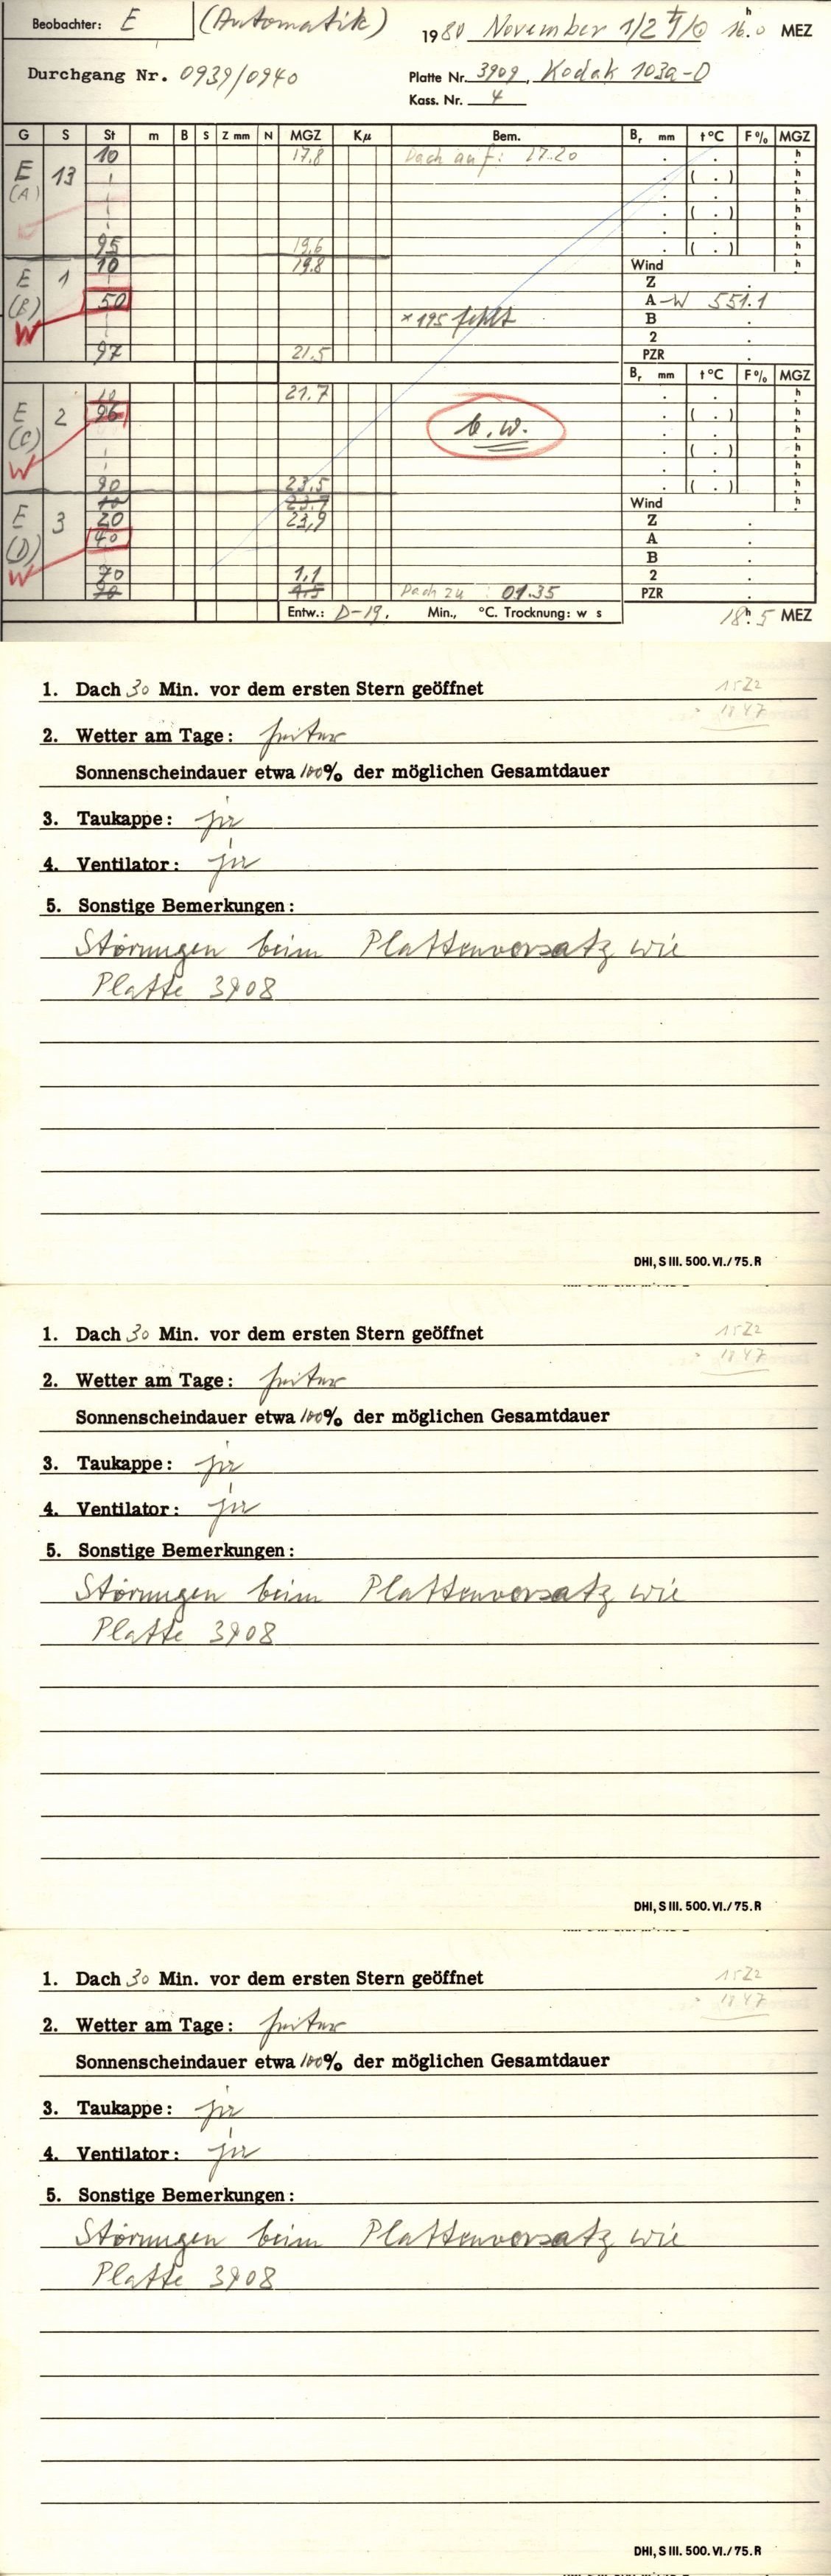 Beobachter: E (Automatik) 1980 November 1/2 16h.0 MEZ
Durchgang Nr. 0939/0940 Platte Nr. 3909, Kodak 103a-O
Kass. Nr. 4
G S St m B S Z mm N MGZ Kμ Bem. Br mm t°C F% MGZ
10 17,8 Dach auf: 17.20 . . h
E 13 . ( . ) h
(A) . . h
. ( . ) h
. . h
95 19,6 . ( . ) h
10 19,8 Wind h
E 1 Z .
(B) 50 A-W 551.1
W × 195 fehlt B .
2 .
97 21,5 PZR .
Br mm t°C F% MGZ
10 21,7 . . h
E 2 26 . ( . ) h
(C) b.w. . . h
. ( . ) h
W . . h
90 23,5 . ( . ) h
10 23,7 Wind h
E 3 20 23,9 Z .
(D) 40 A .
B .
W 70 1,1 2 .
90 1,5 Dach zu : 01.35 PZR .
Entw.: D-19. Min., °C. Trocknung: w s 18h.5 MEZ
1. Dach 30 Min. vor dem ersten Stern geöffnet 1522
1847
2. Wetter am Tage: heiter
Sonnenscheindauer etwa 100% der möglichen Gesamtdauer
3. Taukappe: ja
4. Ventilator: ja
5. Sonstige Bemerkungen:
Störungen beim Plattenvorsatz wie
Platte 3908
DHI, S III. 500. VI./75. R
1. Dach 30 Min. vor dem ersten Stern geöffnet 1522
1847
2. Wetter am Tage: heiter
Sonnenscheindauer etwa 100% der möglichen Gesamtdauer
3. Taukappe: ja
4. Ventilator: ja
5. Sonstige Bemerkungen:
Störungen beim Plattenvorsatz wie
Platte 3908
DHI, S III. 500. VI./75. R
1. Dach 30 Min. vor dem ersten Stern geöffnet 1522
1847
2. Wetter am Tage: heiter
Sonnenscheindauer etwa 100% der möglichen Gesamtdauer
3. Taukappe: ja
4. Ventilator: ja
5. Sonstige Bemerkungen:
Störungen beim Plattenvorsatz wie
Platte 3908
DHI, S III. 500. VI./75. R